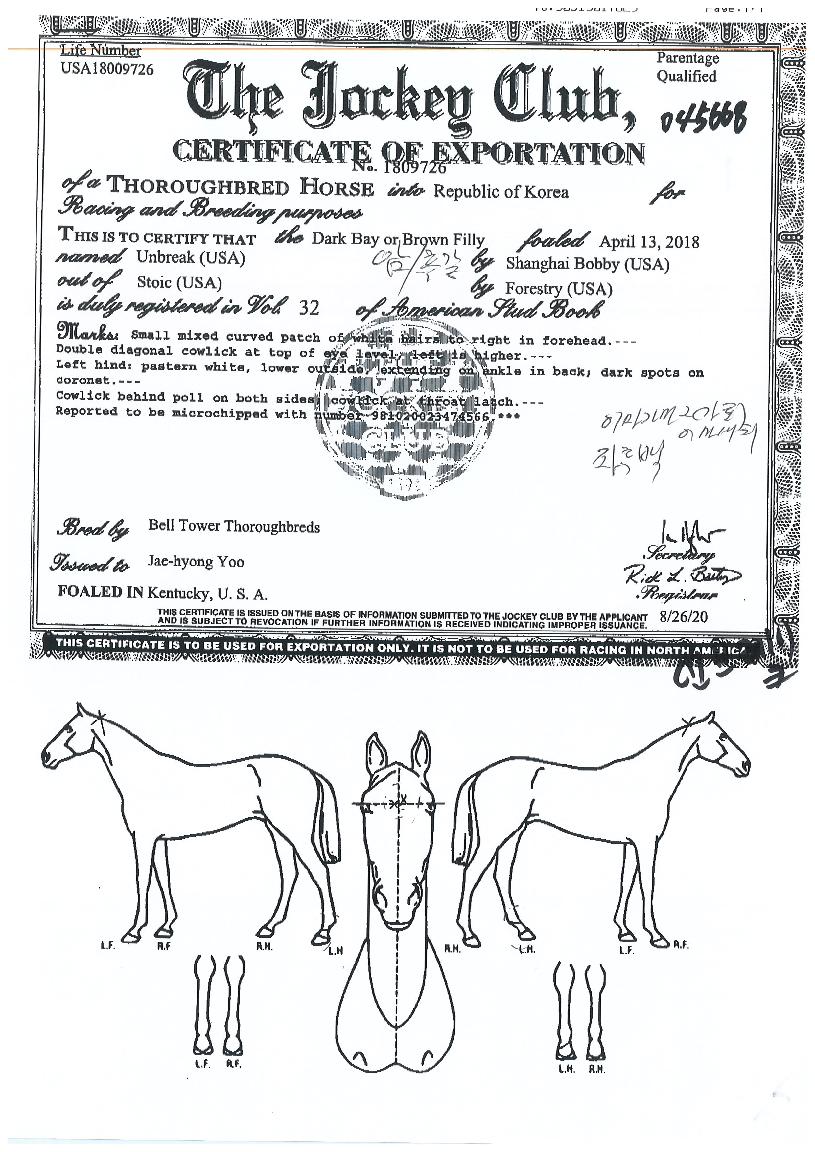 Life Number
USA18009726
Parentage
Qualified
The Jockey Club,
045668
CERTIFICATE OF EXPORTATION
No. 1809726
of a THOROUGHBRED HORSE into Republic of Korea for
Racing and Breeding purposes
THIS IS TO CERTIFY THAT the Dark Bay or Brown Filly foaled April 13, 2018
named Unbreak (USA) by Shanghai Bobby (USA)
out of Stoic (USA) by Forestry (USA)
is duly registered in Vol. 32 of American Stud Book
Marks: Small mixed curved patch of white hairs to right in forehead.---
Double diagonal cowlick at top of eye level; left is higher.---
Left hind: pastern white, lower outside, extending on ankle in back; dark spots on
coronet.---
Cowlick behind poll on both sides; cowlick at throat latch.---
Reported to be microchipped with number 981020023474566.***
CLUB
Bred by Bell Tower Thoroughbreds
Issued to Jae-hyong Yoo
Secretary
Registrar
FOALED IN Kentucky, U. S. A.
THIS CERTIFICATE IS ISSUED ON THE BASIS OF INFORMATION SUBMITTED TO THE JOCKEY CLUB BY THE APPLICANT
AND IS SUBJECT TO REVOCATION IF FURTHER INFORMATION IS RECEIVED INDICATING IMPROPER ISSUANCE.
8/26/20
THIS CERTIFICATE IS TO BE USED FOR EXPORTATION ONLY. IT IS NOT TO BE USED FOR RACING IN NORTH AMERICA
L.F. R.F. R.H. L.H. R.H. L.H. L.F. R.F.
L.F. R.F. L.H. R.H.